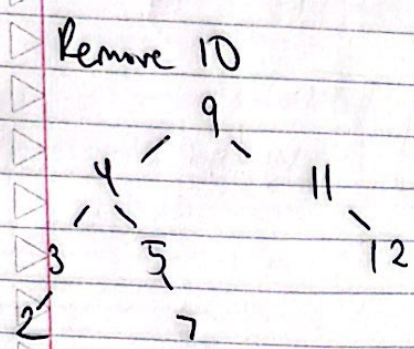 Remove 10
9
4 11
3 5 12
2 7